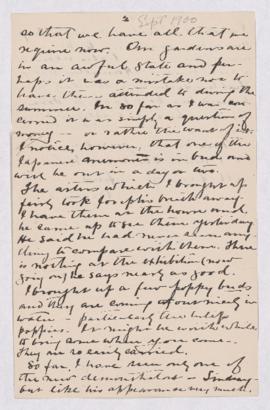 2
Sept 1900
so that we have all that we
require now. Our gardens are
in an awful state and per-
haps it was a mistake not to
have them attended to during the
summer. In so far as I was con-
cerned it was simply a question of
money — or rather the want of it.
I notice, however, that one of the
Japanese anemones is in bud and
will be out in a day or two.
The asters which I brought up
fairly took Josephs breath away
I have them at the house and
he came up to see them yesterday
He said he had never seen any-
thing to compare with them. There
is nothing at the exhibition (now
going on) he says nearly as good.
I brought up a few poppy buds
and they are coming out nicely in
water — particularly the tulip
poppies. It might be worth while
to bring some when you come —
They are so easily carried.
So far, I have seen only one of
the new demonstrators — Lindsay —
but like his appearance very much.